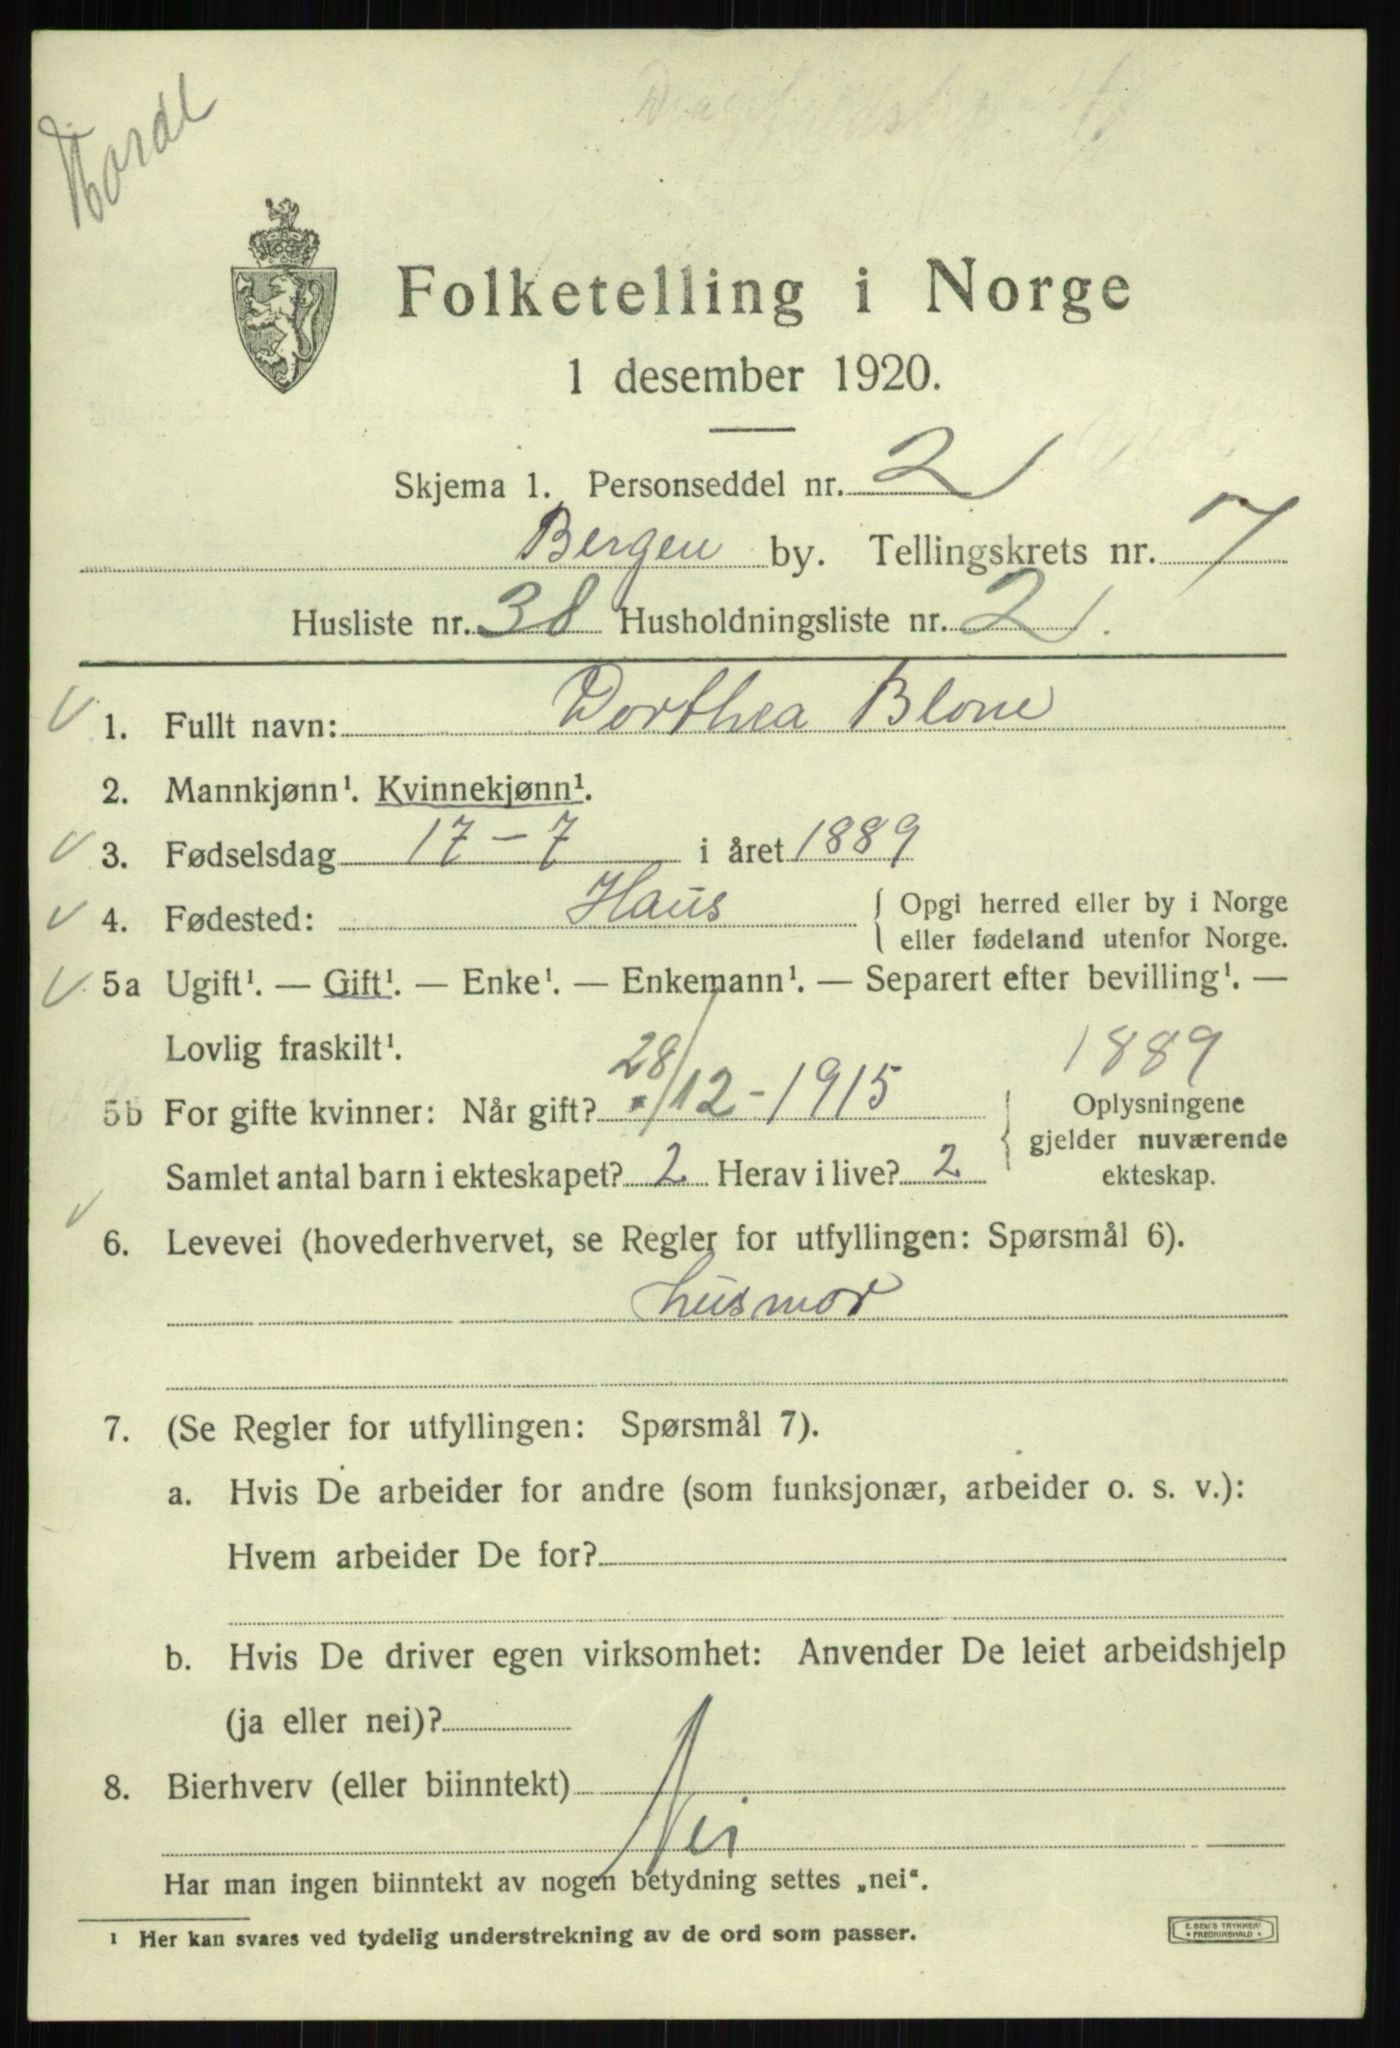 Hordl
Folketelling i Norge
1 desember 1920.
Skjema 1. Personseddel nr. 2
Bergen by. Tellingskrets nr. 7
Husliste nr. 38 Husholdningsliste nr. 2.
1. Fullt navn: Dorthea Blom
2. Mannkjønn¹. Kvinnekjønn¹.
3. Fødselsdag 17-7 i året 1889
4. Fødested: Haus { Opgi herred eller by i Norge
eller fødeland utenfor Norge.
5a Ugift¹. — Gift¹. — Enke¹. — Enkemann¹. — Separert efter bevilling¹. —
Lovlig fraskilt¹.
1889
5b For gifte kvinner: Når gift? 28/12-1915 { Oplysningene
gjelder nuværende
ekteskap.
Samlet antal barn i ekteskapet? 2 Herav i live? 2
6. Levevei (hovederhvervet, se Regler for utfyllingen: Spørsmål 6).
husmor
7. (Se Regler for utfyllingen: Spørsmål 7).
a. Hvis De arbeider for andre (som funksjonær, arbeider o. s. v.):
Hvem arbeider De for?
b. Hvis De driver egen virksomhet: Anvender De leiet arbeidshjelp
(ja eller nei)?
8. Bierhverv (eller biinntekt)
Nei
Har man ingen biinntekt av nogen betydning settes „nei“.
¹ Her kan svares ved tydelig understrekning av de ord som passer.
E. SEM'S TRYKKERI
* FREDRIKSHALD *